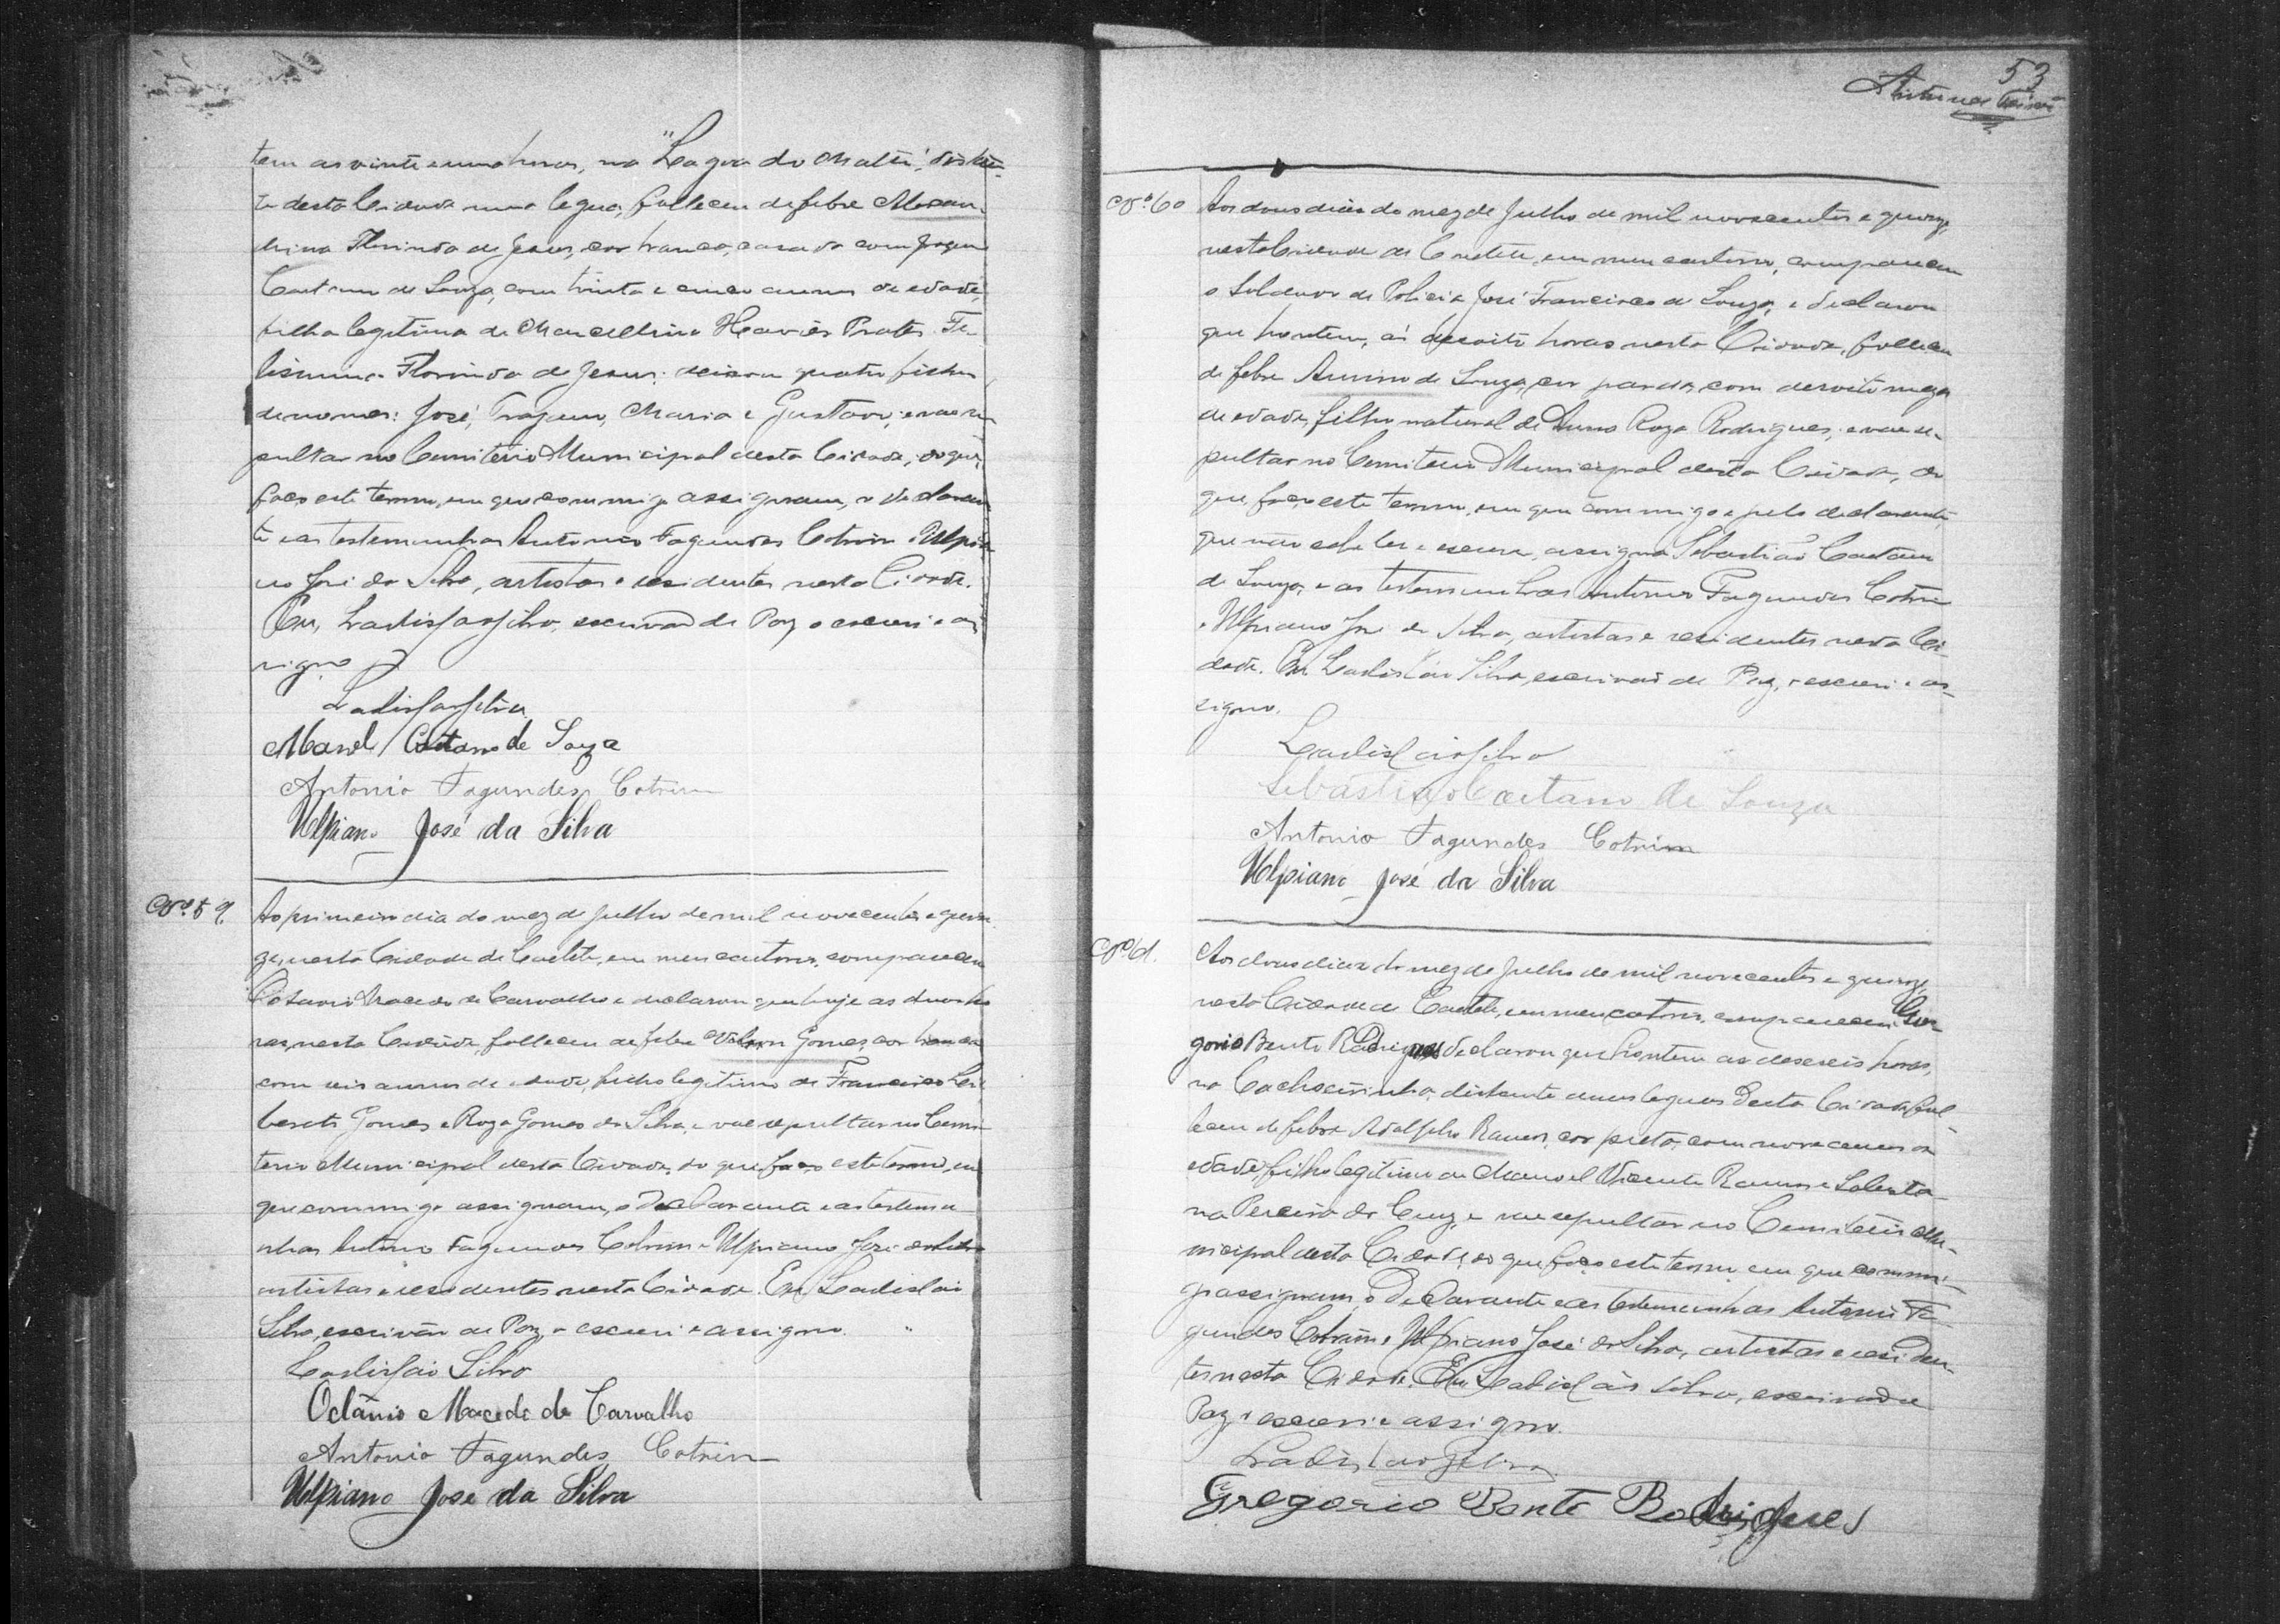 tem as vinte e uma horas, na "Lagoa do Matto", distan-
te desta Cidade uma legua, falleceu de febre
Florinda de Jesus, cor branca, casada com
Caetano de Souza, com trinta e cinco annos de edade,
filha legitima de Marcellino Prates
Florinda de Jesus; deixou quatro filhos
de nomes: José, Maria e Gustavo; e vae se
pultar no Cemiterio Municipal desta Cidade; do que,
faço este termo, em que commigo assignam, o declaran
te e as testemunhas Antonio Fagundes Cotrim e Ulpia
no José da Silva, artistas e residentes nesta Cidade.
Eu, Ladislao Silva, escrivão de Paz o escrevi e as
signo
Ladislao Silva
Manoel Caetano de Souza
Antonio Fagundes Cotrim
Ulpiano José da Silva
Nº 59.
Ao primeiro dia do mez de Julho de mil novecentos e quin
ze, nesta Cidade de Caeteté, em meu cartorio, compareceu
Octavio Macedo de Carvalho e declarou que hoje as duas ho
ras, nesta Cidade, falleceu de febre Gomes, cor branca
com seis annos de edade, filho legitimo de Francisco
Gomes e Roza Gomes da Silva, e vae sepultar no Cemi
terio Municipal desta Cidade, do que faço este termo, em
que commigo assignam, o declarante e as testemu
nhas Antonio Fagundes Cotrim e Ulpiano José da Silva
artistas e residentes nesta Cidade. Eu Ladislao
Silva, escrivão de Paz, o escrevi e assigno.
Ladislao Silva
Octavio Macedo de Carvalho
Antonio Fagundes Cotrim
Ulpiano José da Silva
53
Nº 60
Aos dous dias do mez de Julho de mil novecentos e quinze,
nesta Cidade de Caeteté, em meu cartorio, compareceu
o Soldado de Policia José Francisco de Souza, e declarou
que hontem, ás dezoito horas nesta Cidade, falleceu
de febre de Souza, cor parda, com dezoito mezes
de edade, filho natural de Roza Rodrigues, e vae se-
pultar no Cemiterio Municipal desta Cidade, do
que, faço este termo, em que commigo e pelo declarante
que não sabe ler e escrever, assigna Sebastião Caetano
de Souza, e as testemunhas Antonio Fagundes Cotrim
e Ulpiano José da Silva, artistas e residentes nesta Ci-
dade. Eu Ladislao Silva, escrivão de Paz, o escrevi e as-
signo.
Ladislao Silva
Sebastião Caetano de Souza
Antonio Fagundes Cotrim
Ulpiano José da Silva
Nº 61.
Aos dous dias do mez de Julho de mil novecentos e quinze,
nesta Cidade de Caeteté, em meu cartorio, compareceu Gre
gorio Bento Rodrigues declarou que hontem as deseseis horas,
na Cachoeirinha, distante duas leguas desta Cidade fal-
leceu de febre Adolpho Ramos, cor preta, com nove annos de
edade, filho legitimo de Manoel Vicente Ramos e
na Pereira da Cruz, e vae sepultar no Cemiterio Mu-
nicipal desta Cidade, do que faço este termo em que commi-
go assignam, o Declarante e as testemunhas Antonio Fa-
gundes Cotrim e Ulpiano José da Silva, artistas e residen
tes nesta Cidade. Eu Ladislao Silva, escrivão de
Paz o escrevi e assigno.
Ladislao Silva
Gregorio Bento Rodrigues